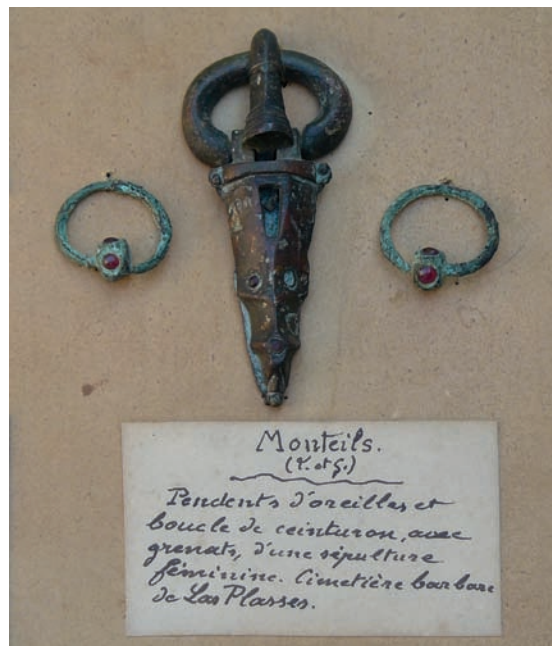 Monteils.
(T. et G.)
Pendents d'oreilles et
boucle de ceinturon, avec
grenats, d'une sépulture
féminine. Cimetière barbare
de Las Plasses.